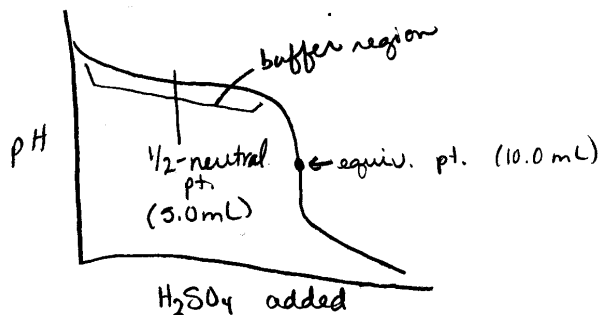 buffer region
pH
1/2-neutral
pt.
(5.0mL)
equiv. pt. (10.0 mL)
H₂SO₄ added